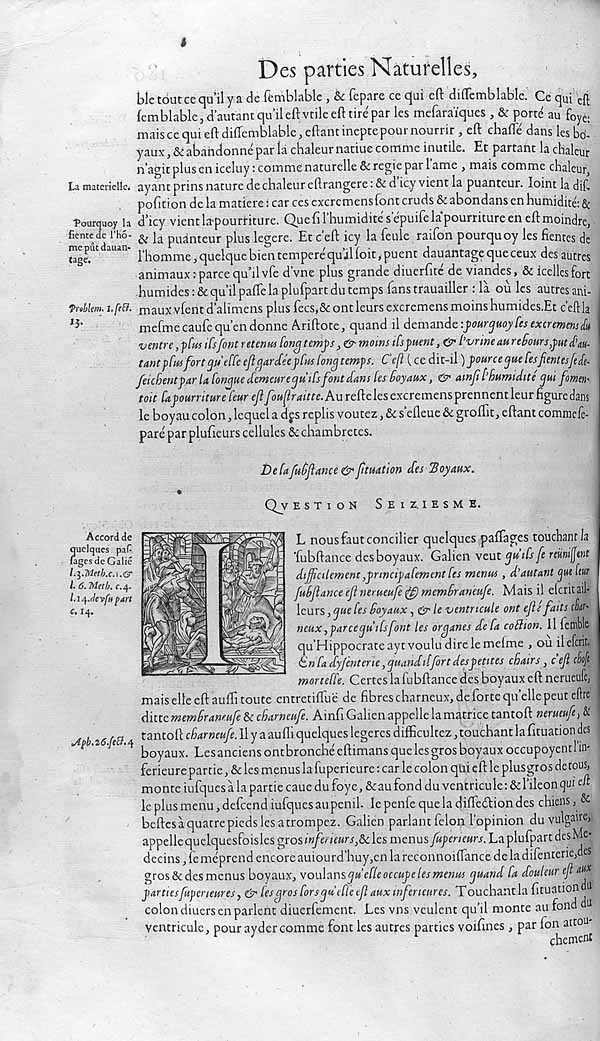 Des parties Naturelles,
ble tout ce qu'il y a de ſemblable, & ſepare ce qui eſt diſſemblable. Ce qui eſt
ſemblable, d'autant qu'il eſt vtile eſt tiré par les meſaraïques, & porté au foye:
mais ce qui eſt diſſemblable, eſtant inepte pour nourrir, eſt chaſſé dans les bo-
yaux, & abandonné par la chaleur natiue comme inutile. Et partant la chaleur
n'agit plus en iceluy: comme naturelle & regie par l'ame, mais comme chaleur,
La materielle.
ayant prins nature de chaleur eſtrangere: & d'icy vient la puanteur. Ioint la diſ-
poſition de la matiere: car ces excremens ſont cruds & abondans en humidité: &
Pourquoy la
fiente de l'hō-
me pût dauan-
tage.
d'icy vient la pourriture. Que ſi l'humidité s'épuiſe la pourriture en eſt moindre,
& la puanteur plus legere. Et c'eſt icy la ſeule raiſon pourquoy les fientes de
l'homme, quelque bien temperé qu'il ſoit, puent dauantage que ceux des autres
animaux: parce qu'il vſe d'vne plus grande diuerſité de viandes, & icelles fort
humides: & qu'il paſſe la pluſpart du temps ſans trauailler: là où les autres ani-
Problem. 1. ſect.
13.
maux vſent d'alimens plus ſecs, & ont leurs excremens moins humides. Et c'eſt la
meſme cauſe qu'en donne Ariſtote, quand il demande: pourquoy les excremens du
ventre, plus ils ſont retenus long temps, & moins ils puent, & l'vrine au rebours, put d'au-
tant plus fort qu'elle eſt gardée plus long temps. C'eſt (ce dit-il) pource que les fientes ſe de-
ſeichent par la longue demeure qu'ils font dans les boyaux, & ainſi l'humidité qui fomen-
toit la pourriture leur eſt ſouſtraitte. Au reſte les excremens prennent leur figure dans
le boyau colon, lequel a des replis voutez, & s'eſleue & groſſit, eſtant comme ſe-
paré par pluſieurs cellules & chambretes.
De la ſubſtance & ſituation des Boyaux.
QVESTION SEIZIESME.
Accord de
quelques paſ-
ſages de Galié
l.3. Meth. c.1. &
l. 6. Meth. c.4.
l.14. de vſu part
c. 14.
IL nous faut concilier quelques paſſages touchant la
ſubſtance des boyaux. Galien veut qu'ils ſe reüniſſent
difficilement, principalement les menus, d'autant que leur
ſubſtance eſt nerueuſe & membraneuſe. Mais il eſcrit ail-
leurs, que les boyaux, & le ventricule ont eſté faits char-
neux, parce qu'ils ſont les organes de la coction. Il ſemble
qu'Hippocrate ayt voulu dire le meſme, où il eſcrit,
En la dyſenterie, quand il ſort des petites chairs, c'eſt choſe
mortelle. Certes la ſubſtance des boyaux eſt nerueuſe,
mais elle eſt auſſi toute entretiſſuë de fibres charneux, de ſorte qu'elle peut eſtre
ditte membraneuſe & charneuſe. Ainſi Galien appelle la matrice tantoſt nerueuſe, &
Aph. 26. ſect. 4
tantoſt charneuſe. Il y a auſſi quelques legeres difficultez, touchant la ſituation des
boyaux. Les anciens ont bronché eſtimans que les gros boyaux occupoyent l'in-
ferieure partie, & les menus la ſuperieure: car le colon qui eſt le plus gros de tous,
monte iuſques à la partie caue du foye, & au fond du ventricule: & l'ileon qui eſt
le plus menu, deſcend iuſques au penil. Ie penſe que la diſſection des chiens, &
beſtes à quatre pieds les a trompez. Galien parlant ſelon l'opinion du vulgaire,
appelle quelquesfois les gros inferieurs, & les menus ſuperieurs. La pluſpart des Me-
decins, ſe méprend encore auiourd'huy, en la reconnoiſſance de la diſenterie, des
gros & des menus boyaux, voulans qu'elle occupe les menus quand la douleur eſt aux
parties ſuperieures, & les gros lors qu'elle eſt aux inferieures. Touchant la ſituation du
colon diuers en parlent diuerſement. Les vns veulent qu'il monte au fond du
ventricule, pour ayder comme font les autres parties voiſines, par ſon attou-
chement